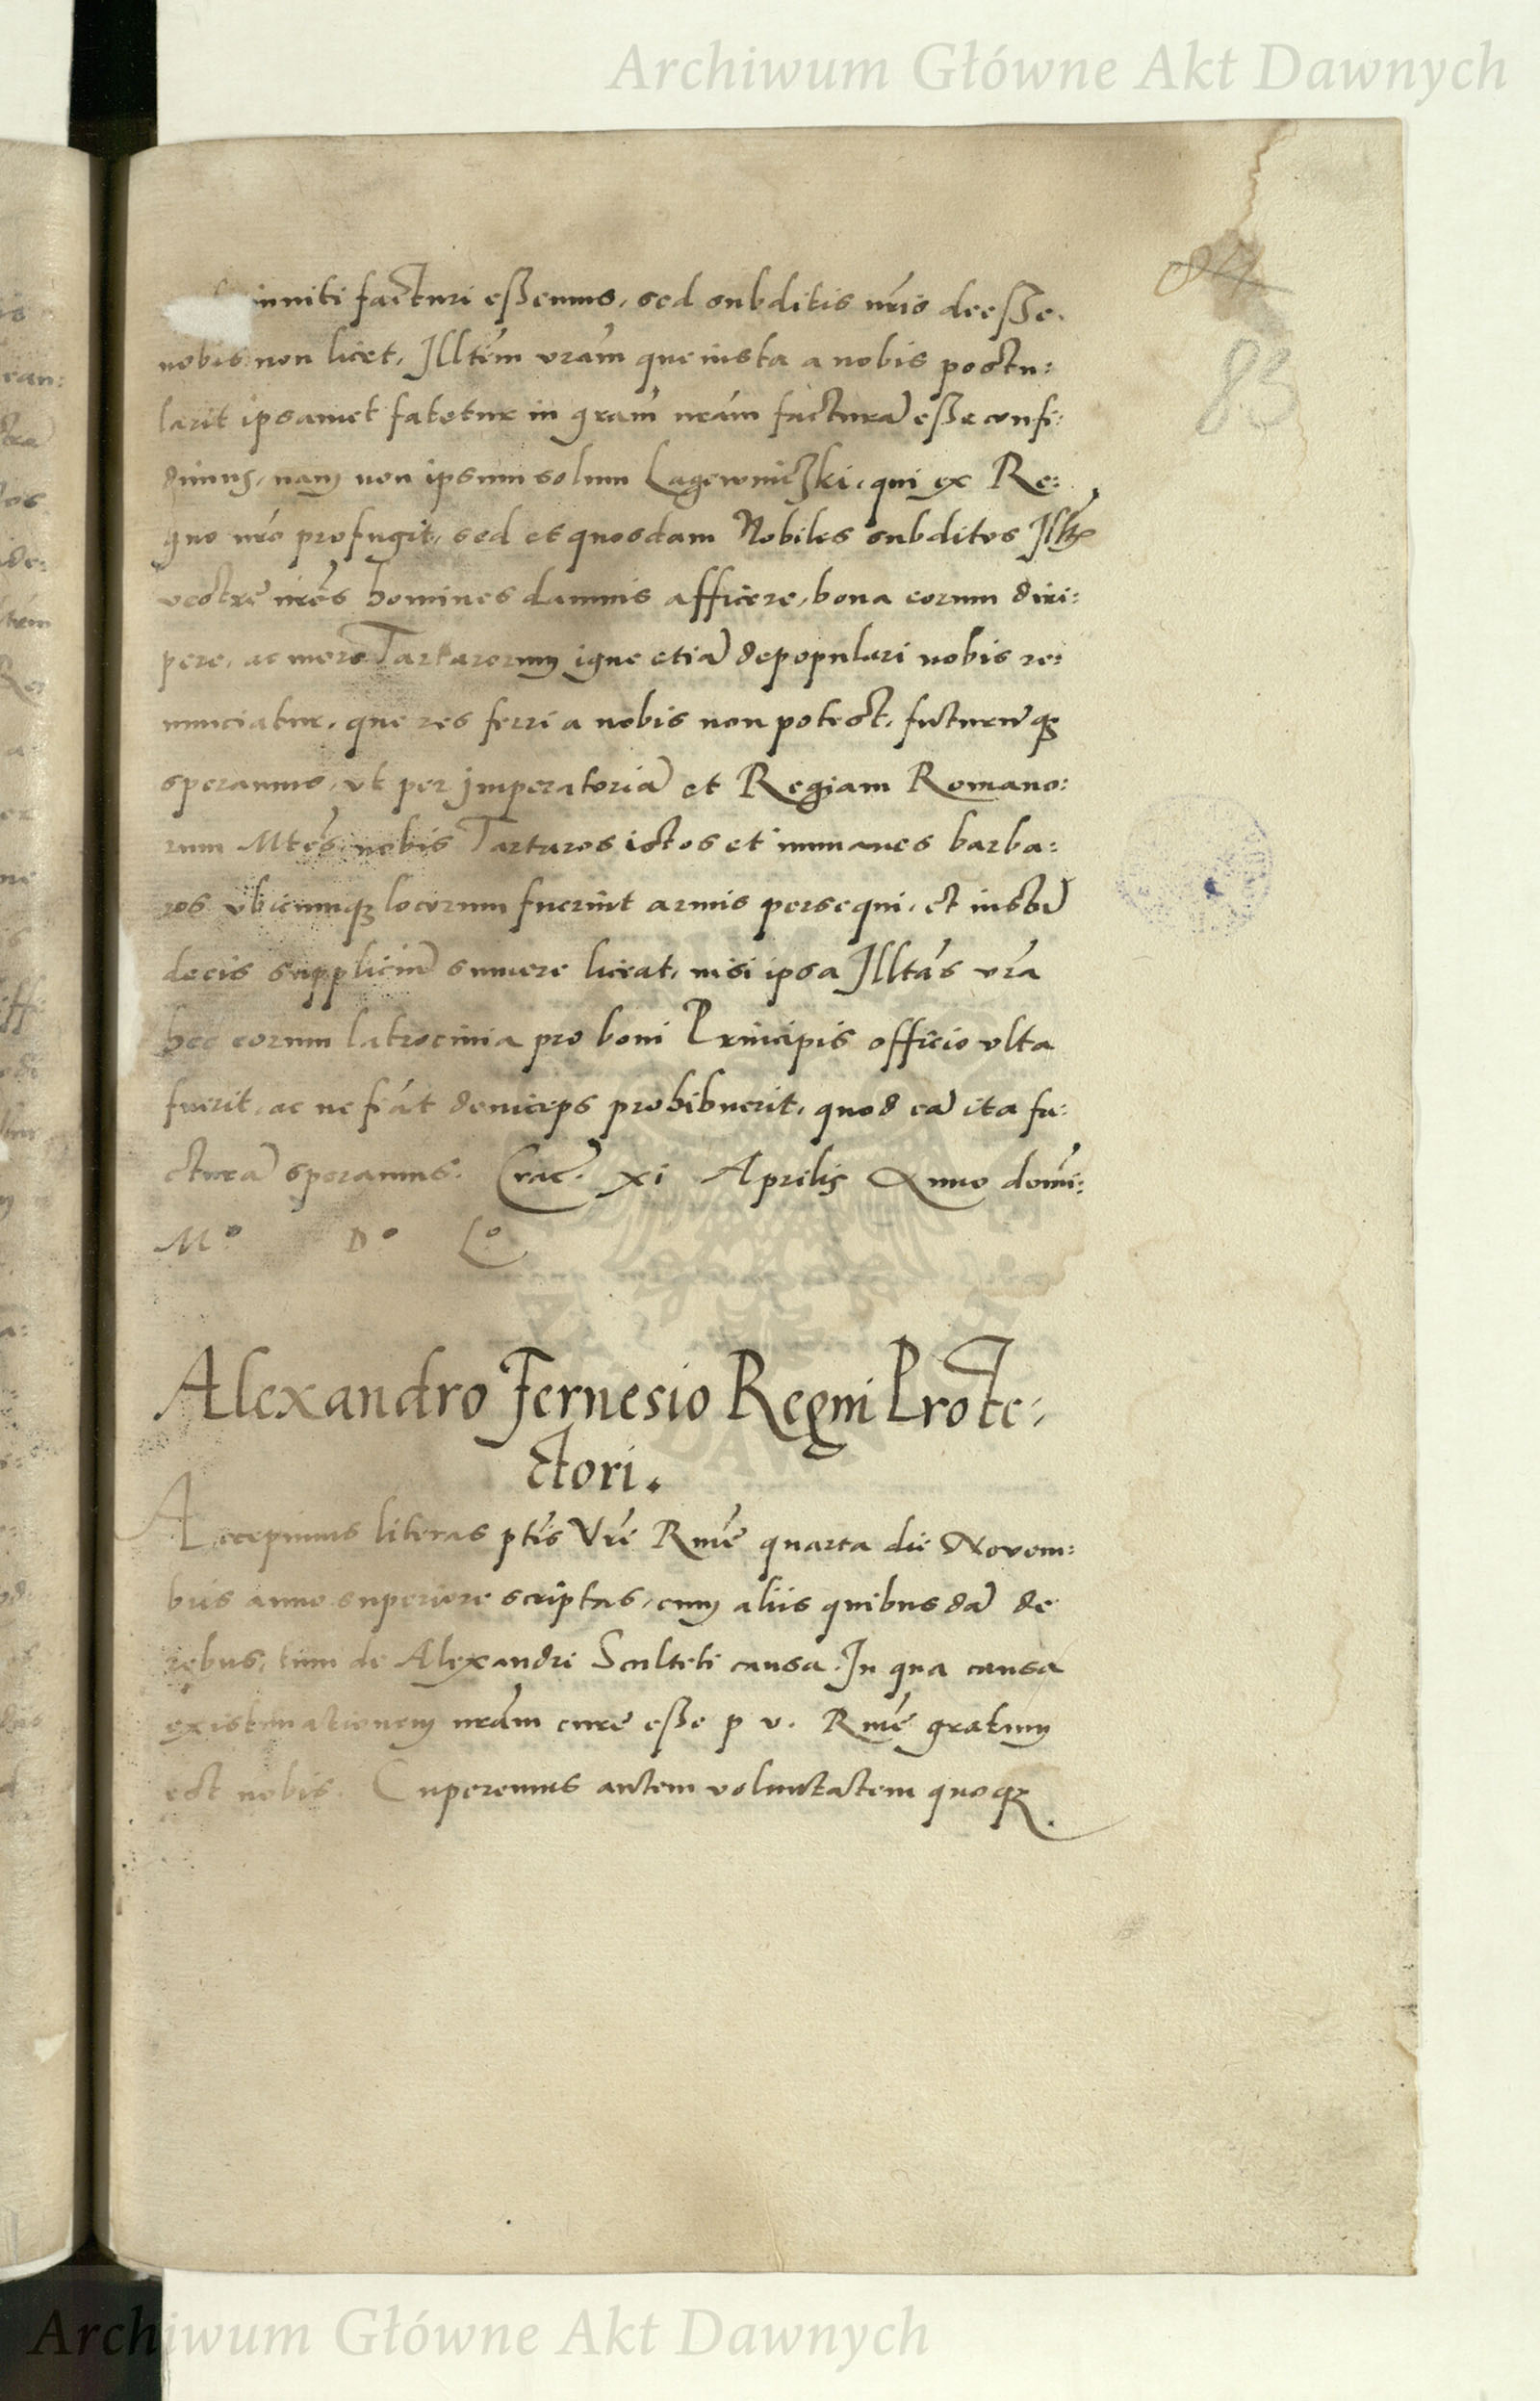 Archiwum Główne Akt Dawnych
inuiti facturi essemus, sed subditis nr̃is deesse
nobis non licet, Illtẽm vrãm que iusta a nobis postu:
larit ipsamet fatetur in grãm nrãm facturã esse confi:
dimus, nam non ipsum solum Lagewniczki, qui ex Re:
gno nrõ profugit, sed et quosdam Nobiles subditos Illtis
vestrẽ nrẽs homines damnis afficere, bona eorum diri:
pere, ac more Tartarorum igne etiã depopulari nobis re:
nunciatur, que res ferri a nobis non potest, futurũq;
speramus, vt per imperatoriã et Regiam Romano:
rum Mtẽs nobis Tartaros istos et inmanes barba:
ros vbicumq; locorum fuerint armis persequi, et iustũ
de eis suppliciũ sumere liceat, nisi ipsa Illtãs vrã
hec eorum latrocinia pro boni Principis officio vlta
fuerit, ac ne fiãt deinceps prohibuerit, quod eã ita fa:
cturã speramus. Crac. xi Aprilis Anno domĩ:
Mº Dº Lº
83
Alexandro Fernesio Regni Prote:
ctori.
Accepimus literas ptĩs Vrẽ Rmẽ quarta die Novem:
bris anno superiore scriptas, cum aliis quibusdã de
rebus, tum de Alexandri Sculteti causa. In qua causa
existimationem nrãm cure esse p v. Rmẽ gratum
est nobis. Cuperemus autem voluntatem quoq;
Archiwum Główne Akt Dawnych